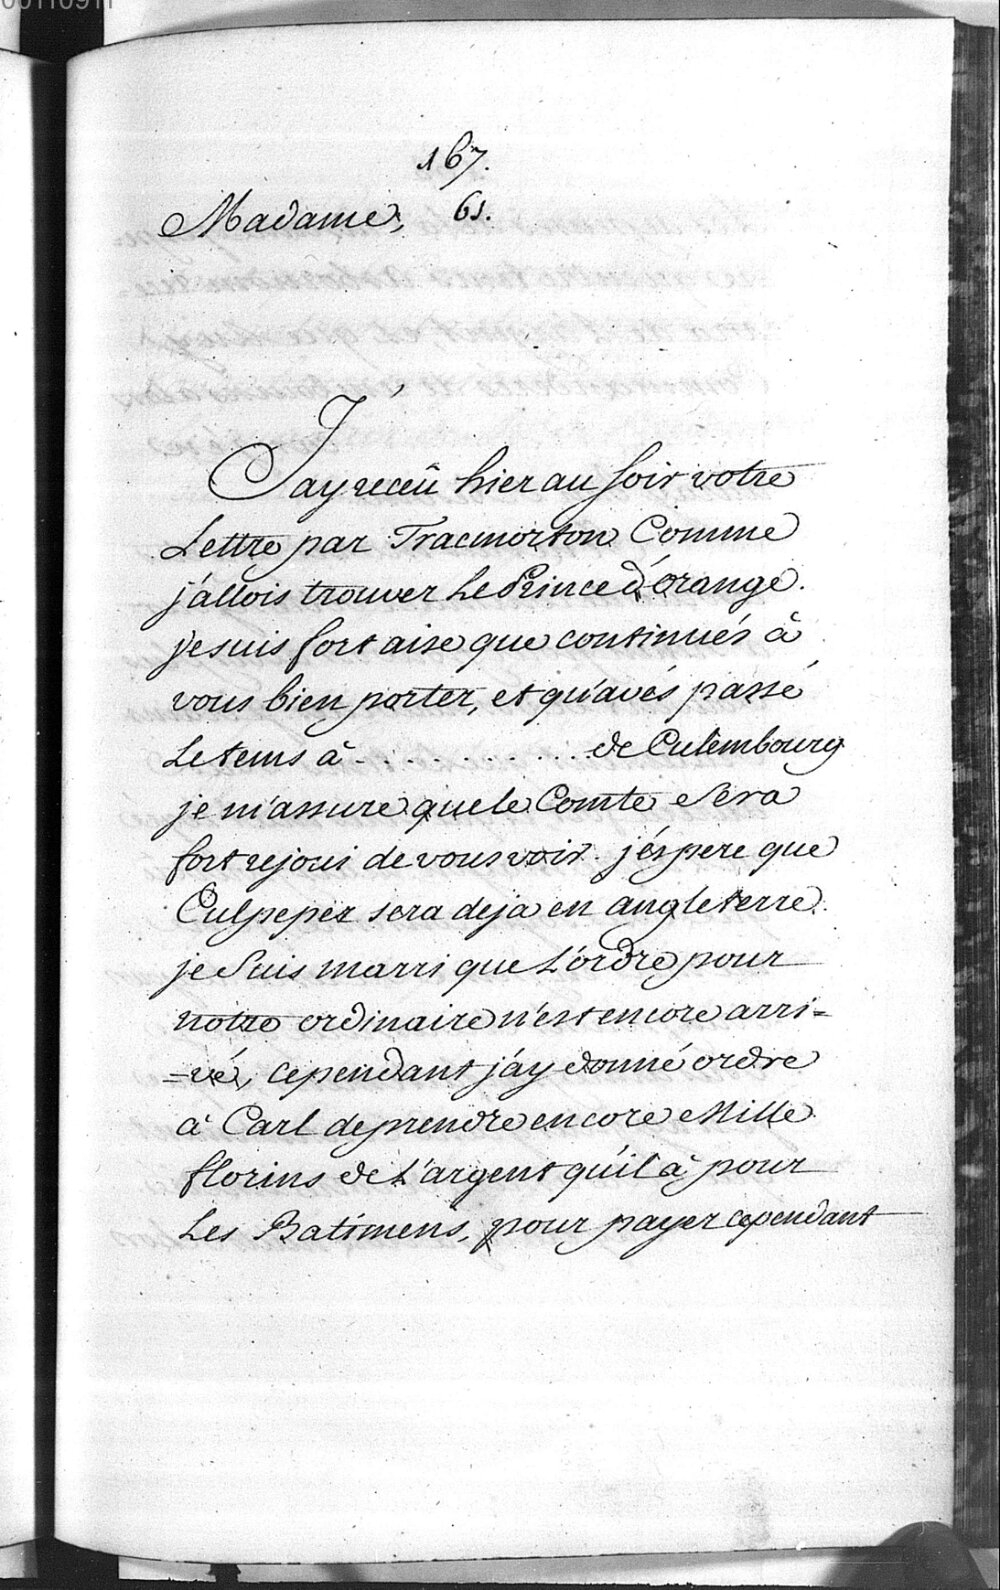 00110911
167.
Madame, 61.
Jay receû hier au soir votre
Lettre par Tracmorton Comme
j'allois trouver Le Prince d'orange.
je suis fort aise que continués à
vous bien porter, et qu'avés passé
Le tems à . . . . . . . . . . . de Culembourg
je m'assure que le Comte Sera
fort rejoui de vous voir. j'éspere que
Culpeper sera deja en angleterre.
je Suis marri que L'ordre pour
notre ordinaire n'est encore arri=
=vé, cependant j'ay donné ordre
à Carl de prendre encore Mille
florins de L'argent qu'il à pour
Les Batimens, pour payer cependant